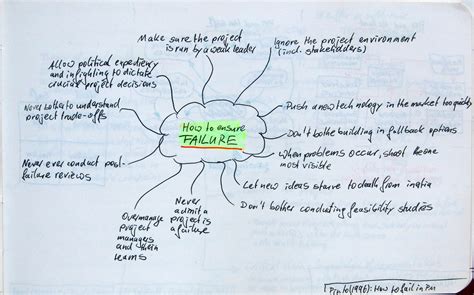 How to ensure
FAILURE
Make sure the project
is run by a weak leader
Ignore the project environment
(incl. stakeholders)
Push a new technology in the market too quickly
Don't bothe building in fallback options
When problems occur, shoot the one
most visible
Let new ideas starve to death from inatia
Don't bother conducting feasibility studies
Never
admit a
project is
a failure
Overmanage
project
managers
and their
teams
Never ever conduct post-
failure reviews
Never bother to understand
project trade-offs
Allow political expediency
and infighting to dictate
crucial project decisions
[Pinto (1996): How to fail in PM